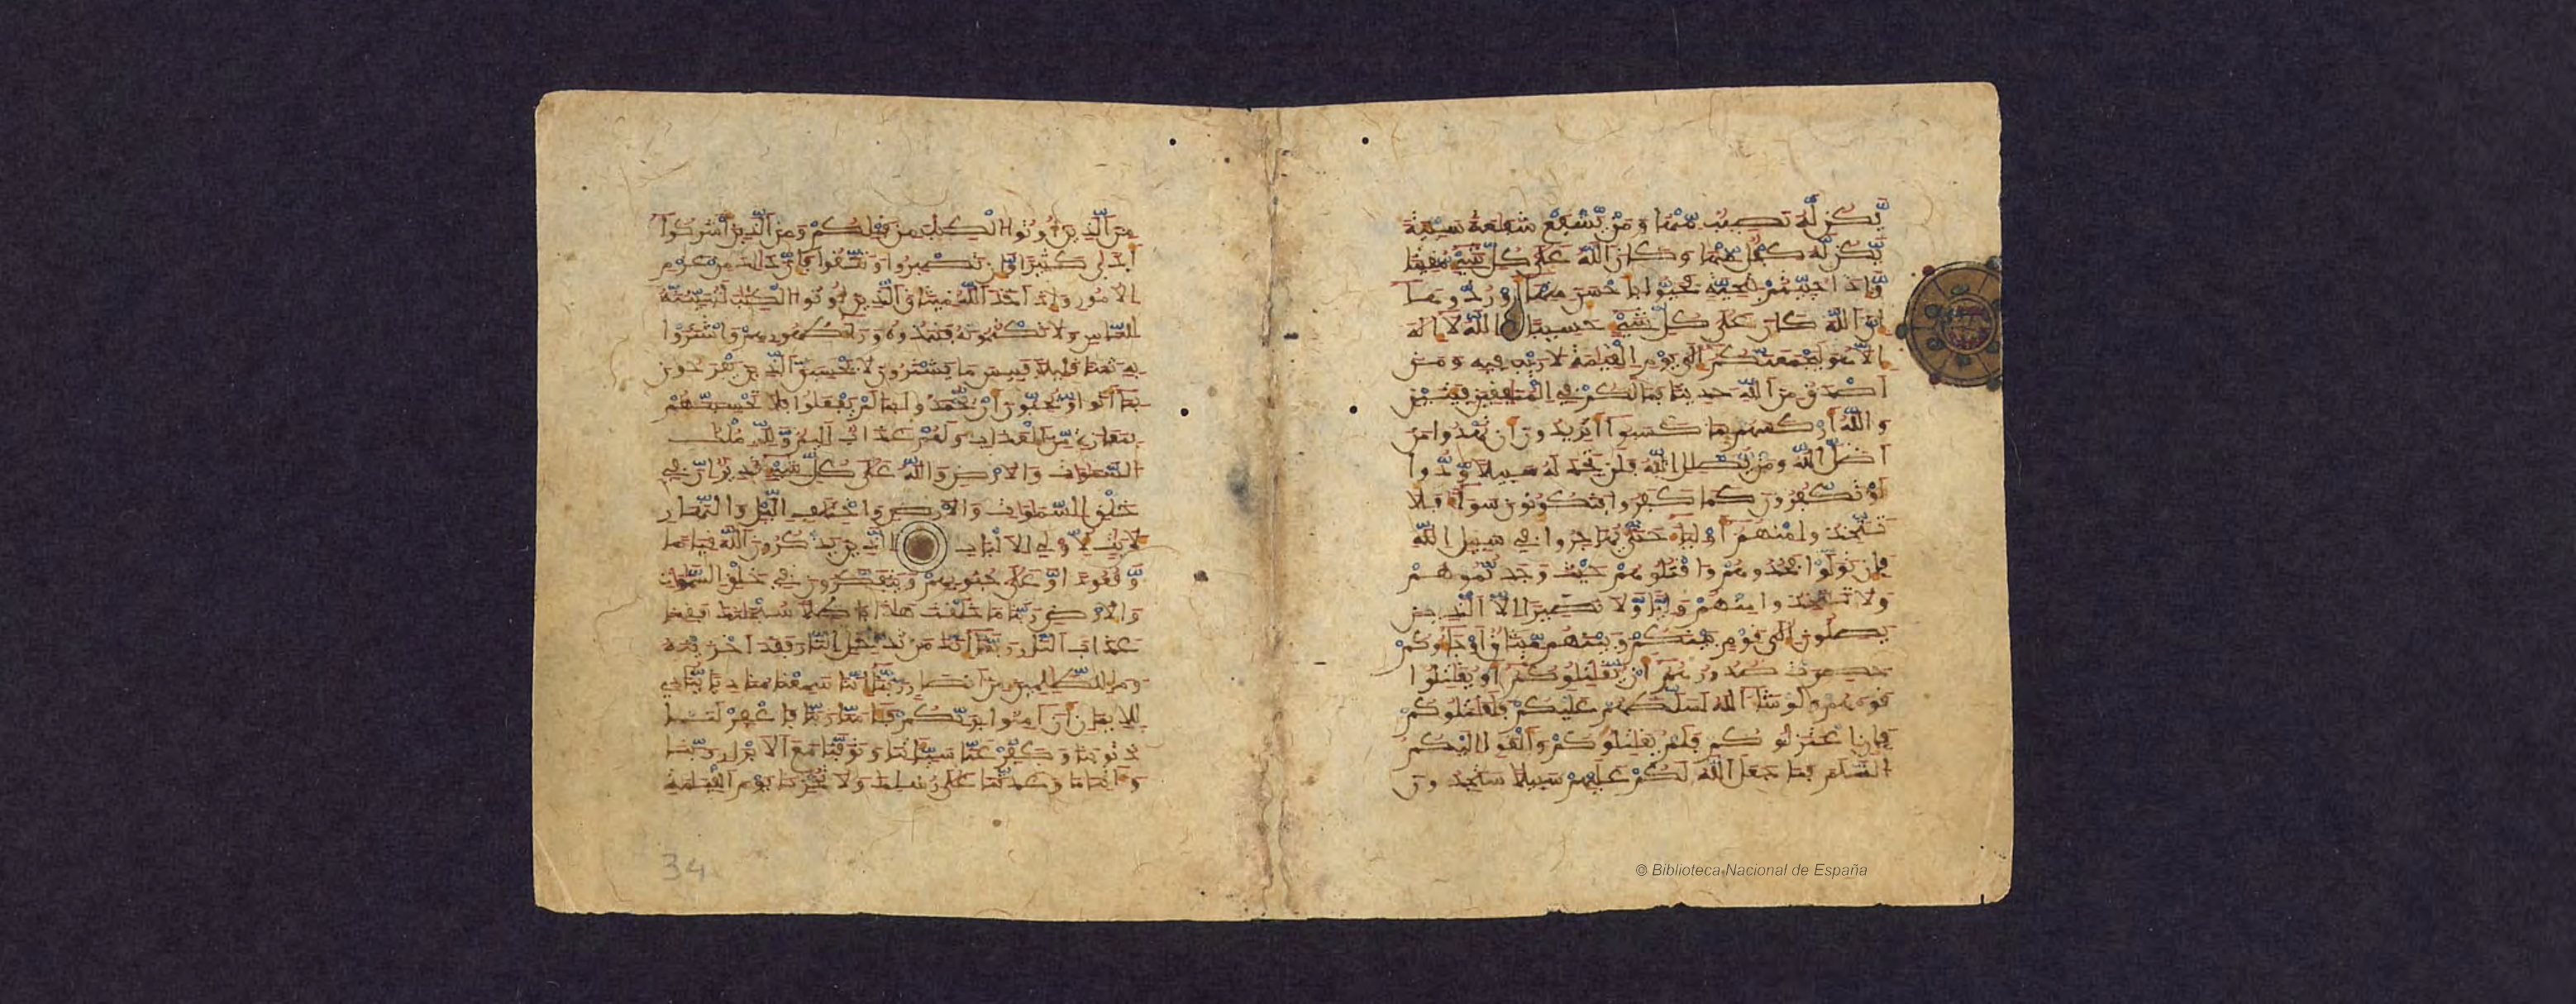 يكن له نصيب منها ومن يشفع شفعة سيئة
يكن له كفل منها وكان الله على كل شيء مقيتا
وإذا حييتم بتحية فحيوا بأحسن منها أو ردوها
إن الله كان على كل شيء حسيبا الله لا إله
إلا هو ليجمعنكم إلى يوم القيمة لا ريب فيه ومن
أصدق من الله حديثا فما لكم في المنفقين فئتين
والله أركسهم بما كسبوا أتريدون أن تهدوا من
أضل الله ومن يضلل الله فلن تجد له سبيلا ودوا
لو تكفرون كما كفروا فتكونون سواء فلا
تتخذوا منهم أولياء حتى يهاجروا في سبيل الله
فإن تولوا فخذوهم واقتلوهم حيث وجدتموهم
ولا تتخذوا منهم وليا ولا نصيرا إلا الذين
يصلون إلى قوم بينكم وبينهم ميثاق أو جاءوكم
حصرت صدورهم أن يقتلوكم أو يقتلوا
قومهم ولو شاء الله لسلطهم عليكم فلقتلوكم
فإن اعتزلوكم فلم يقتلوكم وألقوا إليكم
السلم فما جعل الله لكم عليهم سبيلا ستجدون
من الذين أوتوا الكتب من قبلكم ومن الذين أشركوا
أذى كثيرا وإن تصبروا وتتقوا فإن ذلك من عزم
الأمور وإذ أخذ الله ميثاق الذين أوتوا الكتب لتبيننه
للناس ولا تكتمونه فنبذوه وراء ظهورهم واشتروا
به ثمنا قليلا فبيس ما يشترون لا تحسبن الذين يفرحون
بما أتوا ويحبون أن يحمدوا بما لم يفعلوا فلا تحسبنهم
بمفازة من العذاب ولهم عذاب أليم ولله ملك
السموات والأرض والله على كل شيء قدير إن في
خلق السموات والأرض واختلف الليل والنهار
لأيت لأولي الألبب الذين يذكرون الله قيما
وقعودا وعلى جنوبهم ويتفكرون في خلق السموات
والأرض ربنا ما خلقت هذا بطلا سبحنك فقنا
عذاب النار ربنا إنك من تدخل النار فقد أخزيته
وما للظلمين من أنصار ربنا إننا سمعنا مناديا ينادي
للإيمن أن آمنوا بربكم فآمنا ربنا فاغفر لنا
ذنوبنا وكفر عنا سيئاتنا وتوفنا مع الأبرار ربنا
وآتنا ما وعدتنا على رسلك ولا تخزنا يوم القيمة
34
© Biblioteca Nacional de España